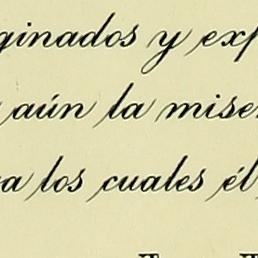 ginados y exp
aún la miser
a los cuales él